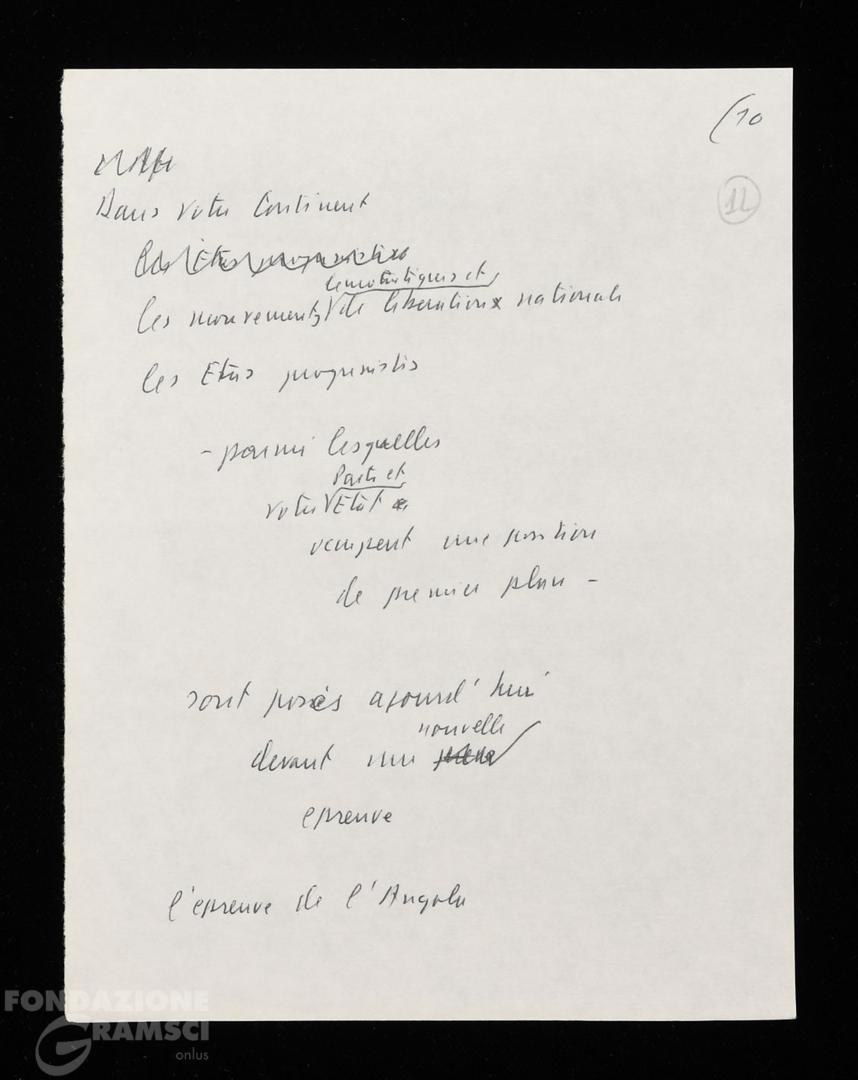 (10
12
Dans votre Continent
les Etats progressistes
democratiques et
les mouvements de liberations nationale
les Etats progressistes
- parmi lesquelles
Parti et
votre Etat
occupent une position
de premier plan -
sont posés ajourd'hui
nouvelle
devant une
epreuve
l'epreuve de l'Angola
FONDAZIONE
GRAMSCI
onlus